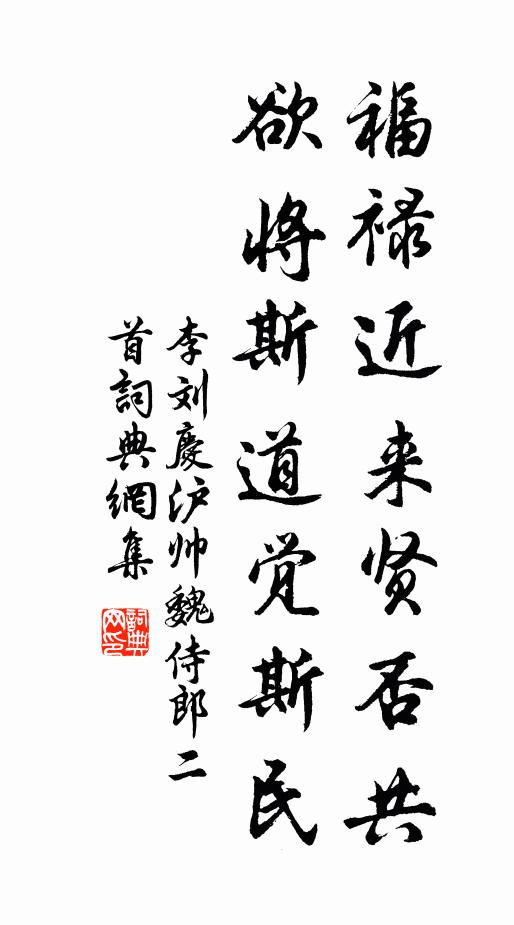 福禄近来贤否共
欲将斯道觉斯民
李刘慶泸帅魏侍郎二
首詞典網集
詞典
网印